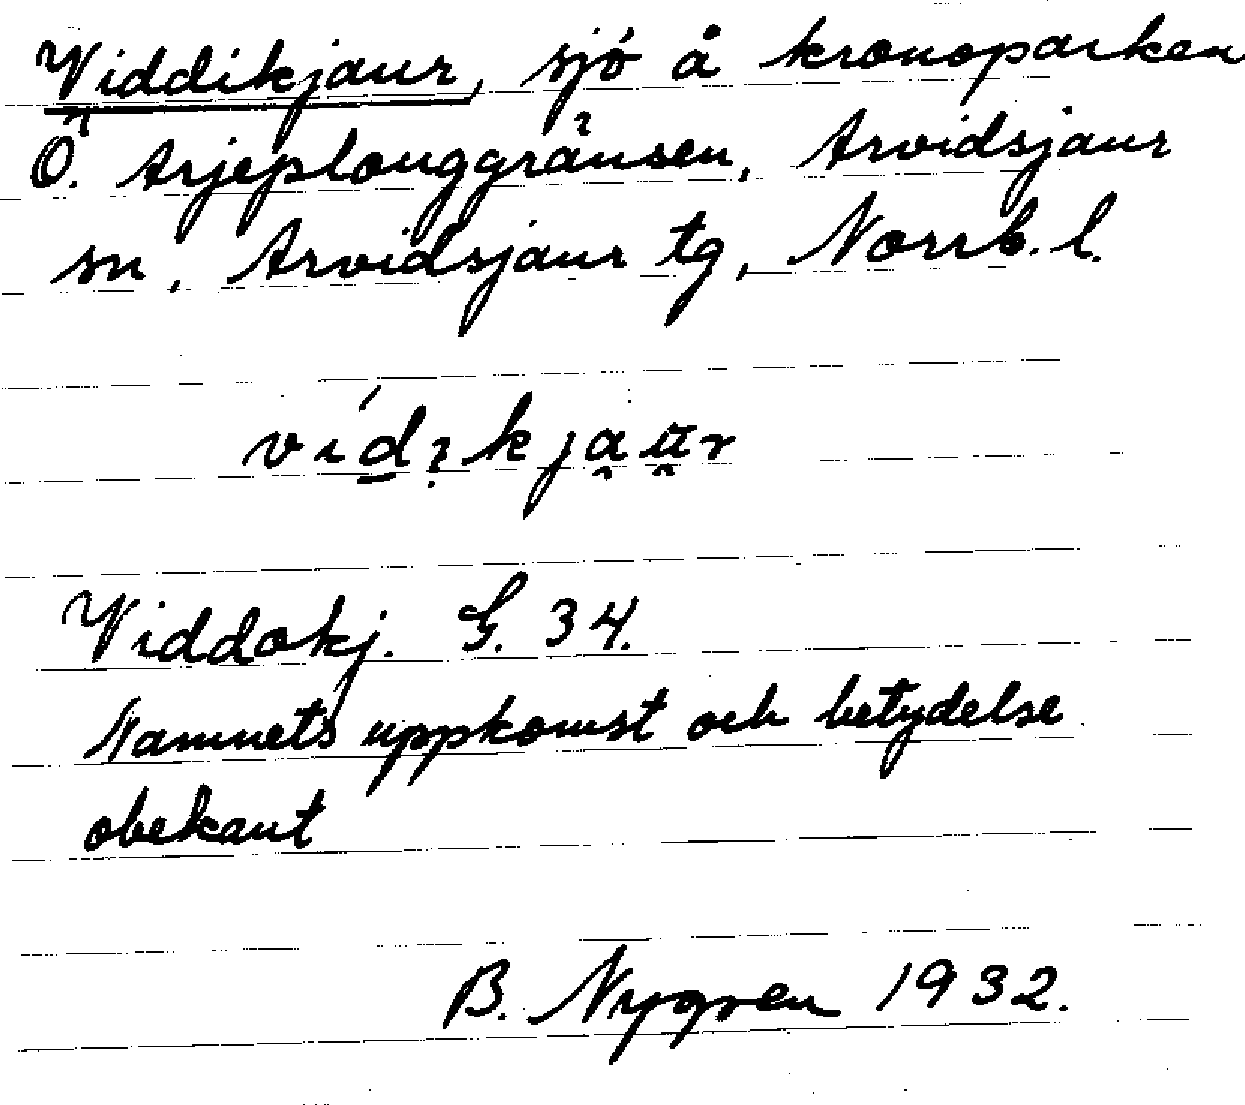 Viddikjaur, sjö å kronoparken
Ö. Arjeplouggränsen, Arvidsjaur
sn, Arvidsjaur tg, Norrb. l.
vídıkjaur
Viddokj. G. 34.
Namnets uppkomst och betydelse
obekant
B. Nygren 1932.